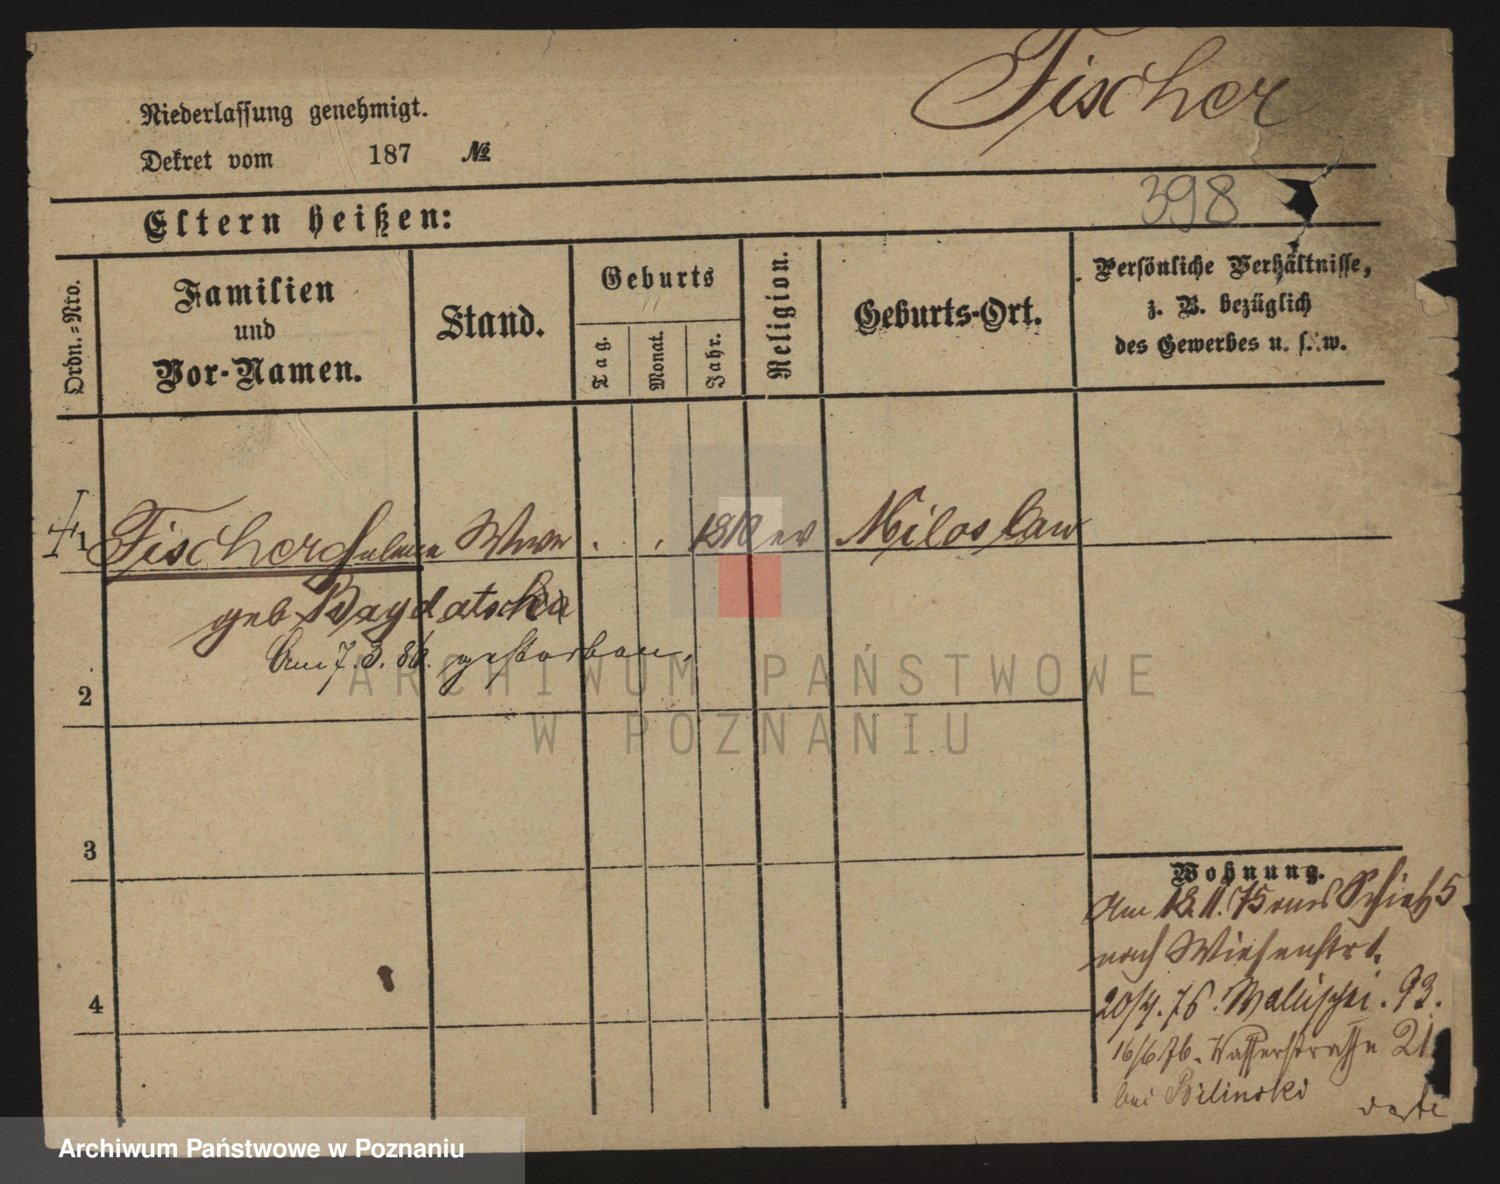 Fischer
Niederlassung genehmigt.
Dekret vom 187 №
398
Eltern heißen:
Ordn.-Nro.
Familien
und
Vor-Namen.
Stand.
Geburts
Tag.
Monat.
Jahr.
Religion.
Geburts-Ort.
Persönliche Verhältnisse,
z. B. bezüglich
des Gewerbes u. s. w.
1 Fischer Helene Wwe . . 1810 ev Miloslaw
geb Bagdatschia
Am 7. 3. 86. gestorben.
2
3
4
Wohnung.
Am 13. 11. 75 Schieß 5
nach Wiesenstr.
20/4. 76. Wallischei. 93.
16/6 76. Wasserstraße 21.
bei Bilinski
verte
ARCHIWUM PAŃSTWOWE
W POZNANIU
Archiwum Państwowe w Poznaniu